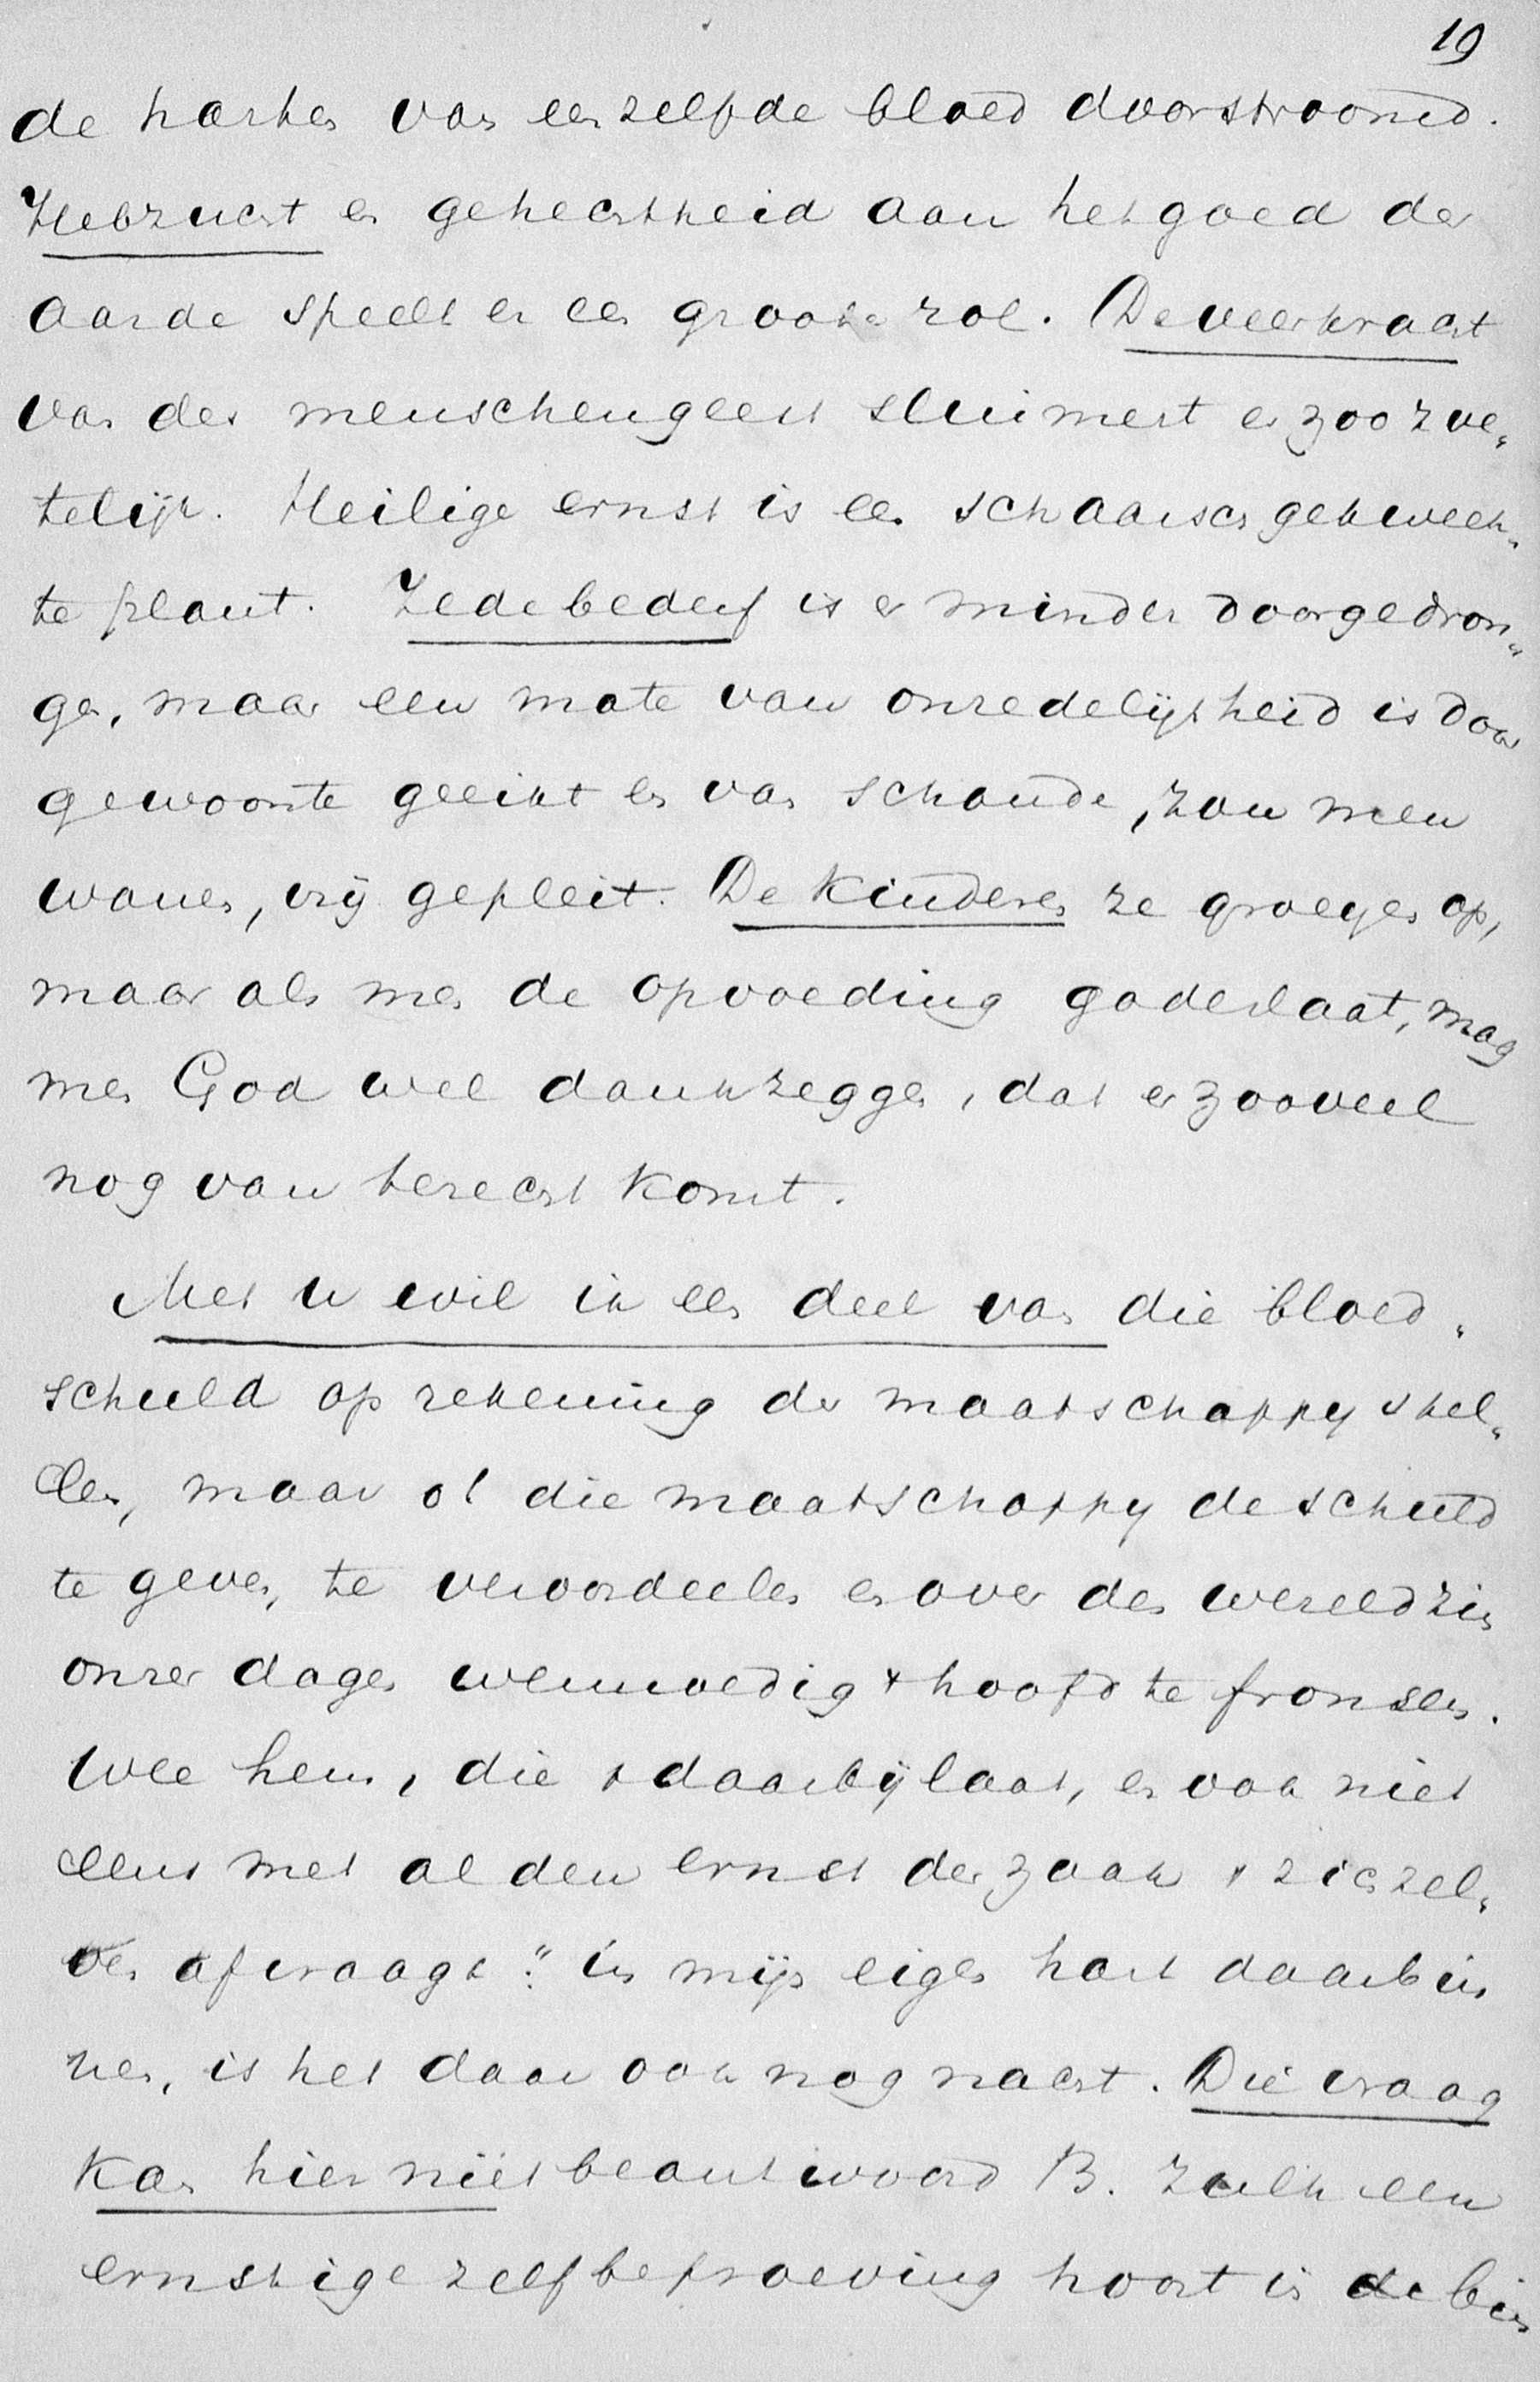 19
de harten van een zelfde bloed doorstroomd.
Hebzucht en gehechtheid aan het goed der
aarde speelt er een groote rol. De veerkracht
van den menschengeest sluimert er zoo zoe„
telijk. Heilige ernst is een schaarsch gekweek„
te plant. Zedebederf is er minder doorgedron„
gen, maar een mate van onredelijkheid is door
gewoonte geeikt en van schande, zou men
wanen, vrij gepleit. De kinderen ze groeyen op,
maar als men de opvoeding gadeslaat, mag
men God wel dankzeggen, dat er zooveel
nog van terecht komt.
Met u wil ik een deel van die bloed„
schuld op rekening der maatschappy stel„
len, maar o! die maatschappy de schuld
te geven, te veroordeelen en over den wereldzin
onzer dagen weemoedig t hoofd te fronsen.
Wee hem, die t daarbij laat, en ook niet
eens met al den ernst der zaak t zichzel„
ven afvraagt: "in mijn eigen hart daarbin
nen, is het daar ook nog nacht. Die vraag
kan hier niet beantwoord B. Zulk een
ernstige zelfbeproeving hoort in de bin